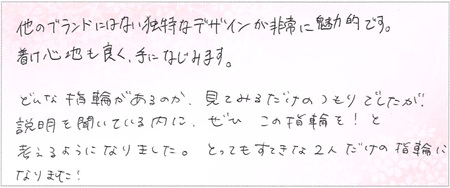 他のブランドにはない独特なデザインが非常に魅力的です。
着け心地も良く、手になじみます。
どんな指輪があるのか、見てみるだけのつもりでしたが、
説明を聞いている内に、ぜひ この指輪を!と
考えるようになりました。とってもすてきな2人だけの指輪に
なりました!